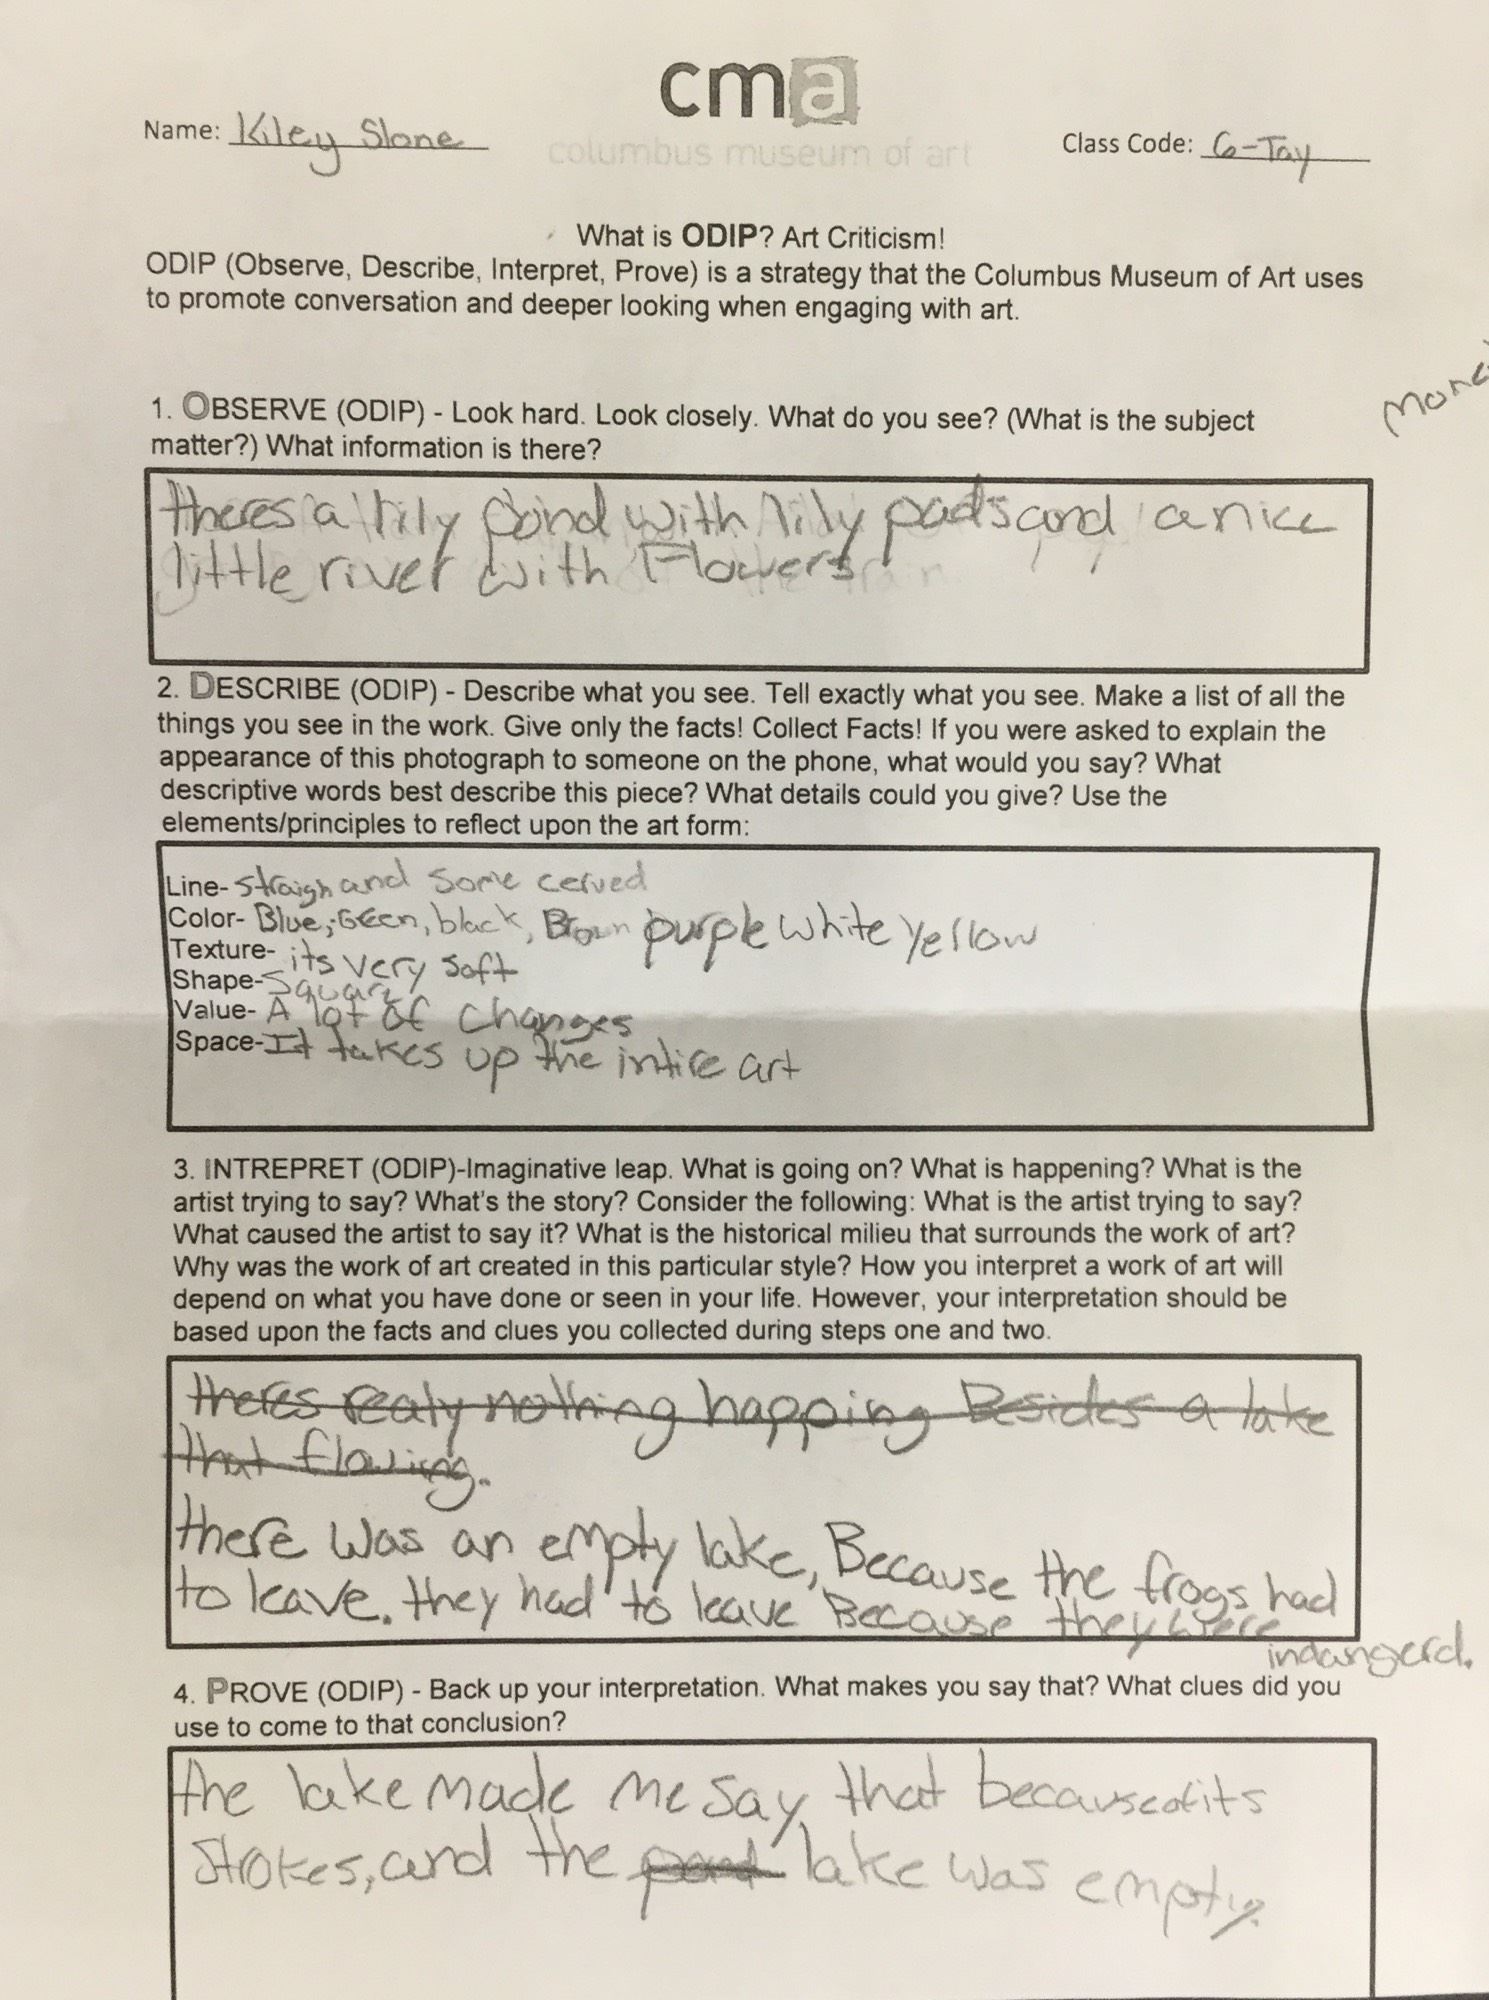 cma
columbus museum of art
Name: Kiley Slone
Class Code: G-Tay
What is ODIP? Art Criticism!
ODIP (Observe, Describe, Interpret, Prove) is a strategy that the Columbus Museum of Art uses
to promote conversation and deeper looking when engaging with art.
1. OBSERVE (ODIP) - Look hard. Look closely. What do you see? (What is the subject
matter?) What information is there?
theres a lily pond with lily pads and a nice
little river with Flowers
2. DESCRIBE (ODIP) - Describe what you see. Tell exactly what you see. Make a list of all the
things you see in the work. Give only the facts! Collect Facts! If you were asked to explain the
appearance of this photograph to someone on the phone, what would you say? What
descriptive words best describe this piece? What details could you give? Use the
elements/principles to reflect upon the art form:
Line- straigh and some cerved
Color- Blue, Green, black, Brown purple white yellow
Texture- its very soft
Shape- Square
Value- A lot of changes
Space- It takes up the intire art
3. INTREPRET (ODIP)-Imaginative leap. What is going on? What is happening? What is the
artist trying to say? What's the story? Consider the following: What is the artist trying to say?
What caused the artist to say it? What is the historical milieu that surrounds the work of art?
Why was the work of art created in this particular style? How you interpret a work of art will
depend on what you have done or seen in your life. However, your interpretation should be
based upon the facts and clues you collected during steps one and two.
theres realy nothing happing Besides a lake
that flowing.
there was an empty lake, Because the frogs had
to leave. they had to leave Because they were
indangerd.
4. PROVE (ODIP) - Back up your interpretation. What makes you say that? What clues did you
use to come to that conclusion?
the lake made me say that because of its
strokes, and the pond lake was empty.